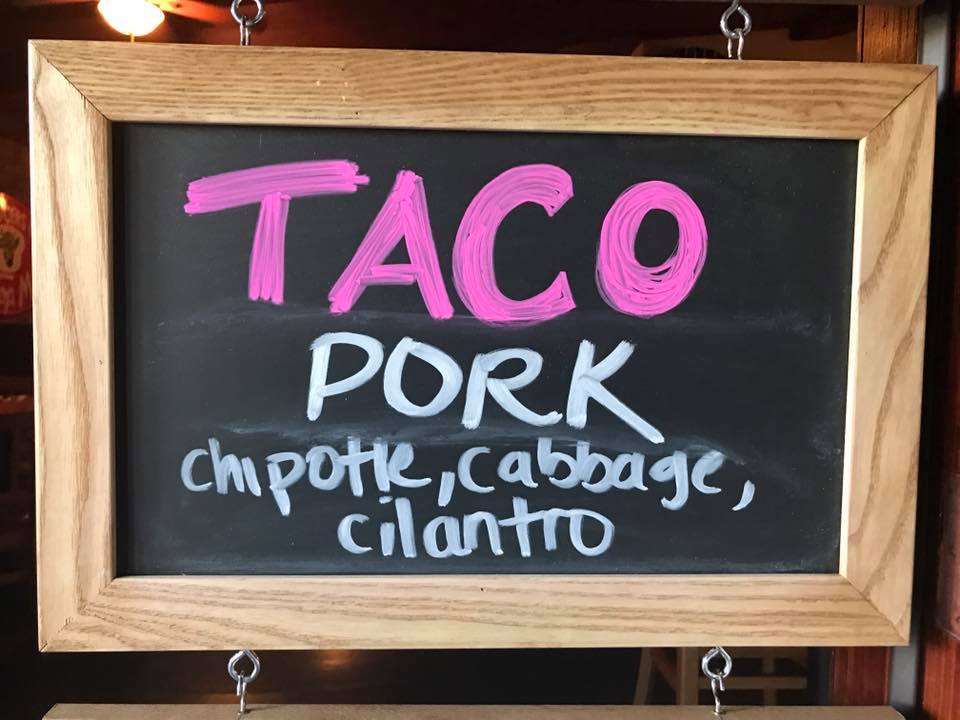 TACO
PORK
chipotle, cabbage,
cilantro